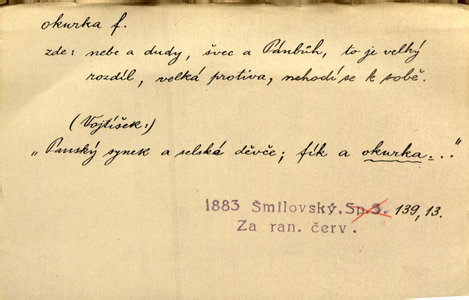 okurka f.
zde: nebe a dudy, švec a Pánbůh, to je velký
rozdíl, velká protiva, nehodí se k sobě.
(Vojtíšek:)
„Panský synek a selská děvče; fík a okurka..."
1883 Šmilovský, Sp.3. 139,13.
Za ran. červ.